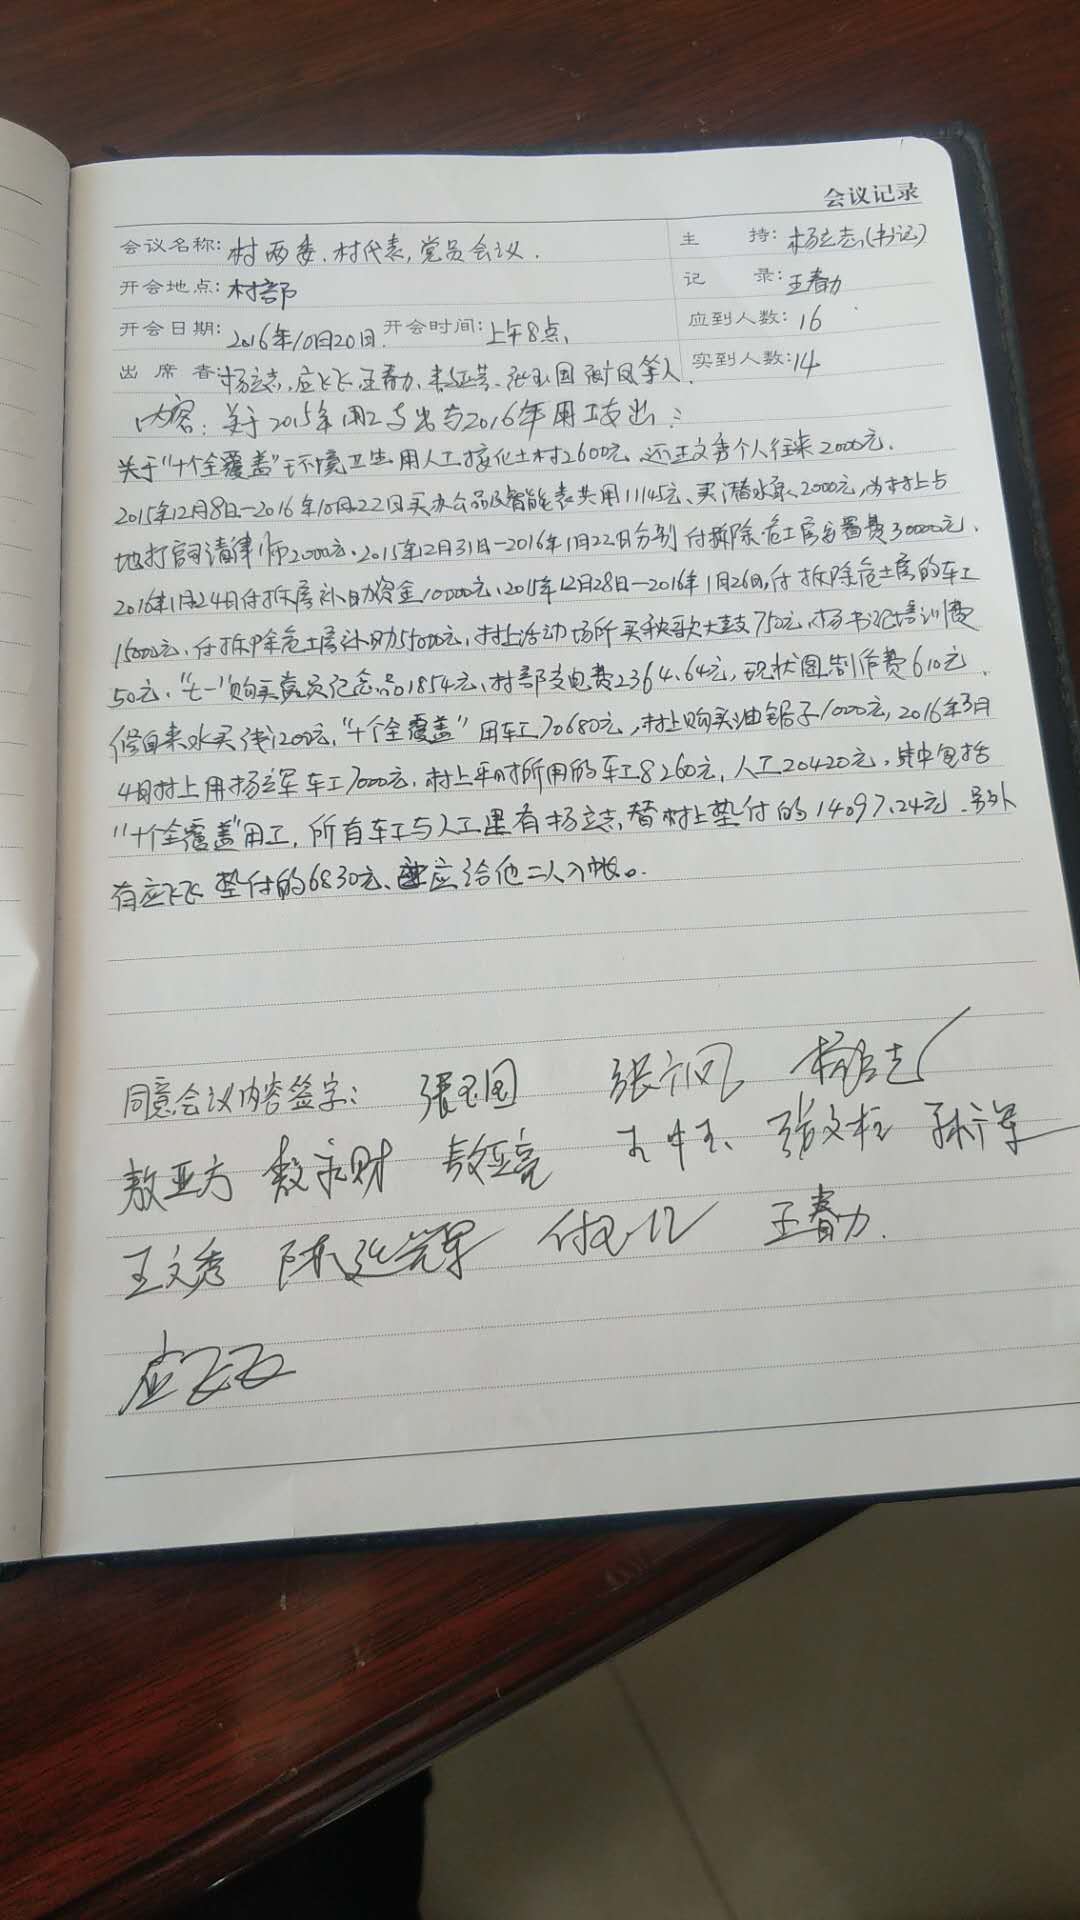 会议记录
会议名称: 村两委、村代表、党员会议. 主 持: 杨立志(书记)
开会地点: 村部 记 录: 王春力
开会日期: 2016年10月20日. 开会时间: 上午8点, 应到人数: 16
出席者: 杨立志、应飞飞、王春力、张玉国 等人. 实到人数: 14
内容: 关于2015年用工支出与2016年用工支出:
关于"十个全覆盖"环境卫生用人工 村2600元、还王文秀个人往来2000元.
2015年12月8日—2016年10月22日买办公品及智能表共用11145元、买潜水泵2000元,为村上占
地打官司请律师2000元. 2015年12月31日—2016年1月22日分别付拆除危土房安置费30000元.
2016年1月24日付拆房补助资金10000元、2015年12月28日—2016年1月26日,付拆除危土房的车工
1500元,付拆除危土房补助 元,村上活动场所买秧歌大鼓750元,杨书记培训费
50元,"七一"购买党员纪念品1854元、村部交电费2364.64元,现状图制作费610元.
修自来水买 1200元,"十个全覆盖"用车工70680元,村上购买油锯子1000元,2016年3月
4日村上用杨立军车工7000元,村上平时所用的车工8260元,人工20420元,其中包括
"十个全覆盖"用工,所有车工与人工里有杨立志替村上垫付的14097.24元.另外
有应飞飞垫付的6830元、应给他二人入帐。
同意会议内容签字: 张玉国 杨立志
敖亚方 敖永财 敖亚亮 张文柱
王文秀 陈延辉 王春力.
应飞飞